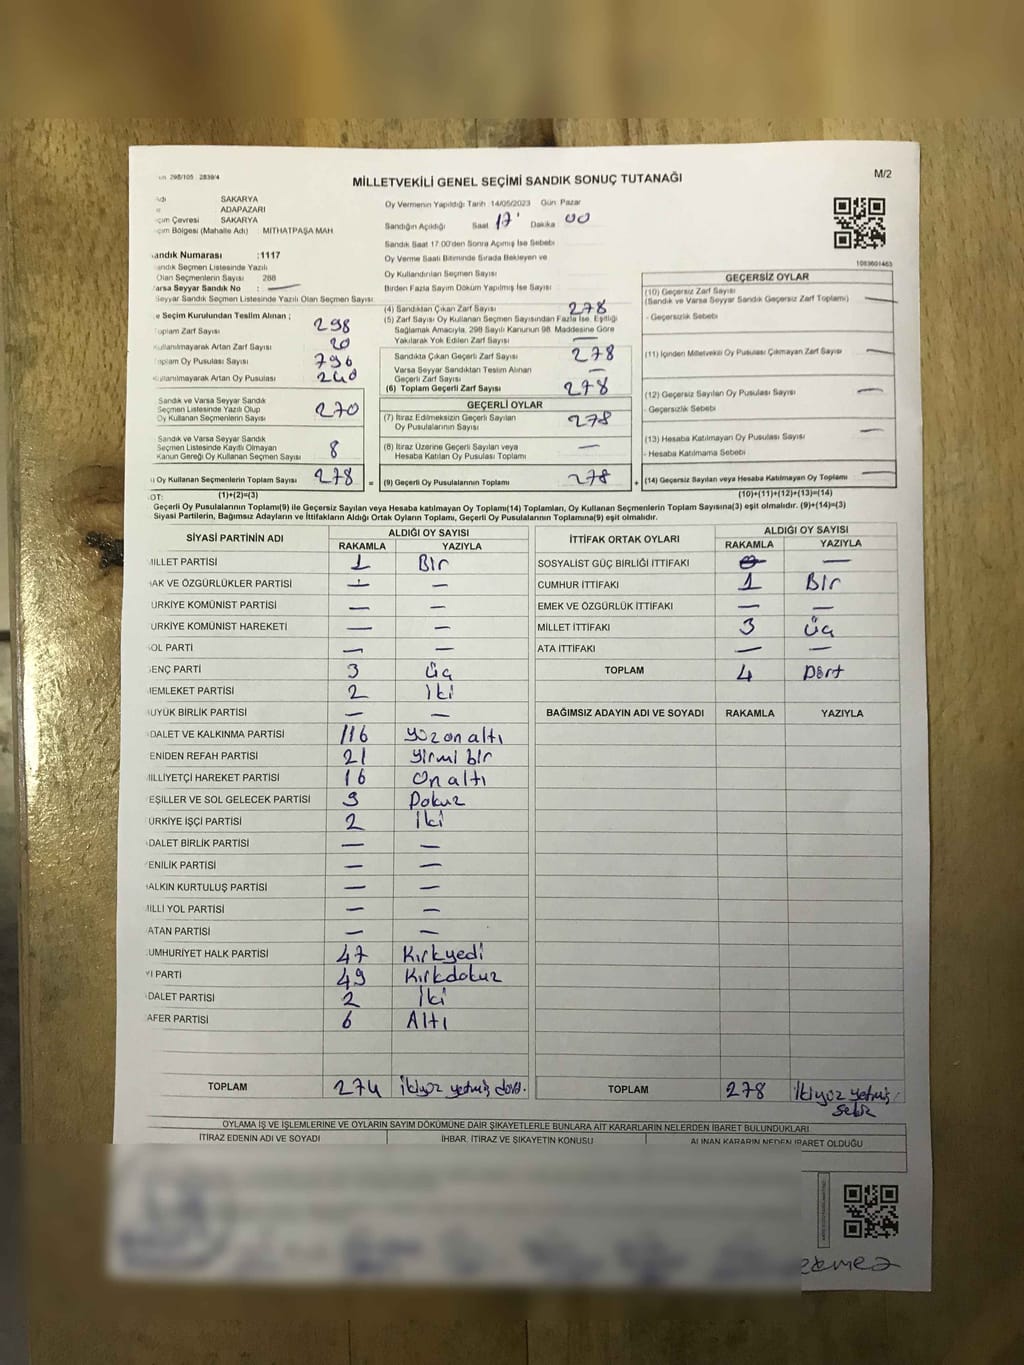 298/105 2839/4
MİLLETVEKİLİ GENEL SEÇİMİ SANDIK SONUÇ TUTANAĞI
M/2
SAKARYA
ADAPAZARI
çim Çevresi SAKARYA
çim Bölgesi (Mahalle Adı) MİTHATPAŞA MAH.
Oy Vermenin Yapıldığı Tarih :14/05/2023 Gün Pazar
Sandığın Açıldığı Saat 17 Dakika 00
Sandık Saat 17.00'den Sonra Açmış İse Sebebi
Oy Verme Saati Bitiminde Sırada Bekleyen ve
Oy Kullandırılan Seçmen Sayısı
Birden Fazla Sayım Döküm Yapılmış İse Sayısı
1083601463
andık Numarası :1117
andık Seçmen Listesinde Yazılı
Olan Seçmenlerin Sayısı 288
arsa Seyyar Sandık No : —
Seyyar Sandık Seçmen Listesinde Yazılı Olan Seçmen Sayısı
e Seçim Kurulundan Teslim Alınan ;
oplam Zarf Sayısı 298
ullanılmayarak Artan Zarf Sayısı 20
oplam Oy Pusulası Sayısı 796
ullanılmayarak Artan Oy Pusulası 240
Sandık ve Varsa Seyyar Sandık
Seçmen Listesinde Yazılı Olup
Oy Kullanan Seçmenlerin Sayısı 270
Sandık ve Varsa Seyyar Sandık
Seçmen Listesinde Kayıtlı Olmayan
Kanun Gereği Oy Kullanan Seçmen Sayısı 8
Oy Kullanan Seçmenlerin Toplam Sayısı 278 =
(4) Sandıktan Çıkan Zarf Sayısı 278
(5) Zarf Sayısı Oy Kullanan Seçmen Sayısından Fazla İse, Eşitliği
Sağlamak Amacıyla, 298 Sayılı Kanunun 98. Maddesine Göre
Yakılarak Yok Edilen Zarf Sayısı —
Sandıkta Çıkan Geçerli Zarf Sayısı 278
Varsa Seyyar Sandıktan Teslim Alınan
Geçerli Zarf Sayısı —
(6) Toplam Geçerli Zarf Sayısı 278
GEÇERLİ OYLAR
(7) İtiraz Edilmeksizin Geçerli Sayılan
Oy Pusulalarının Sayısı 278
(8) İtiraz Üzerine Geçerli Sayılan veya
Hesaba Katılan Oy Pusulası Toplamı —
(9) Geçerli Oy Pusulalarının Toplamı 278 +
GEÇERSİZ OYLAR
(10) Geçersiz Zarf Sayısı
(Sandık ve Varsa Seyyar Sandık Geçersiz Zarf Toplamı) —
- Geçersizlik Sebebi
(11) İçinden Milletvekili Oy Pusulası Çıkmayan Zarf Sayısı —
(12) Geçersiz Sayılan Oy Pusulası Sayısı —
- Geçersizlik Sebebi
(13) Hesaba Katılmayan Oy Pusulası Sayısı —
- Hesaba Katılmama Sebebi
(14) Geçersiz Sayılan veya Hesaba Katılmayan Oy Toplamı —
OT: (1)+(2)=(3) (10)+(11)+(12)+(13)=(14)
Geçerli Oy Pusulalarının Toplamı(9) ile Geçersiz Sayılan veya Hesaba katılmayan Oy Toplamı(14) Toplamları, Oy Kullanan Seçmenlerin Toplam Sayısına(3) eşit olmalıdır. (9)+(14)=(3)
Siyasi Partilerin, Bağımsız Adayların ve İttifakların Aldığı Ortak Oyların Toplamı, Geçerli Oy Pusulalarının Toplamına(9) eşit olmalıdır.
SİYASİ PARTİNİN ADI ALDIĞI OY SAYISI
RAKAMLA YAZIYLA
MİLLET PARTİSİ 1 Bir
HAK VE ÖZGÜRLÜKLER PARTİSİ — —
URKİYE KOMÜNİST PARTİSİ — —
URKİYE KOMÜNİST HAREKETİ — —
SOL PARTİ — —
ENÇ PARTİ 3 Üç
MEMLEKET PARTİSİ 2 İki
UYÜK BİRLİK PARTİSİ — —
DALET VE KALKINMA PARTİSİ 116 Yüzonaltı
ENİDEN REFAH PARTİSİ 21 Yirmi bir
MİLLİYETÇİ HAREKET PARTİSİ 16 Onaltı
EŞİLLER VE SOL GELECEK PARTİSİ 9 Dokuz
ÜRKİYE İŞÇİ PARTİSİ 2 İki
DALET BİRLİK PARTİSİ — —
ENİLİK PARTİSİ — —
HALKIN KURTULUŞ PARTİSİ — —
MİLLİ YOL PARTİSİ — —
ATAN PARTİSİ — —
CUMHURİYET HALK PARTİSİ 47 Kırkyedi
Yİ PARTİ 49 Kırkdokuz
DALET PARTİSİ 2 İki
AFER PARTİSİ 6 Altı
TOPLAM 274 İkiyüz yetmiş dört.
İTTİFAK ORTAK OYLARI ALDIĞI OY SAYISI
RAKAMLA YAZIYLA
SOSYALİST GÜÇ BİRLİĞİ İTTİFAKI —
CUMHUR İTTİFAKI 1 Bir
EMEK VE ÖZGÜRLÜK İTTİFAKI — —
MİLLET İTTİFAKI 3 Üç
ATA İTTİFAKI — —
TOPLAM 4 Dört
BAĞIMSIZ ADAYIN ADI VE SOYADI RAKAMLA YAZIYLA
TOPLAM 278 İkiyüz yetmiş
sekiz
OYLAMA İŞ VE İŞLEMLERİNE VE OYLARIN SAYIM DÖKÜMÜNE DAİR ŞİKAYETLERLE BUNLARA AİT KARARLARIN NELERDEN İBARET BULUNDUKLARI
İTİRAZ EDENİN ADI VE SOYADI İHBAR, İTİRAZ VE ŞİKAYETİN KONUSU ALINAN KARARIN NEDEN İBARET OLDUĞU